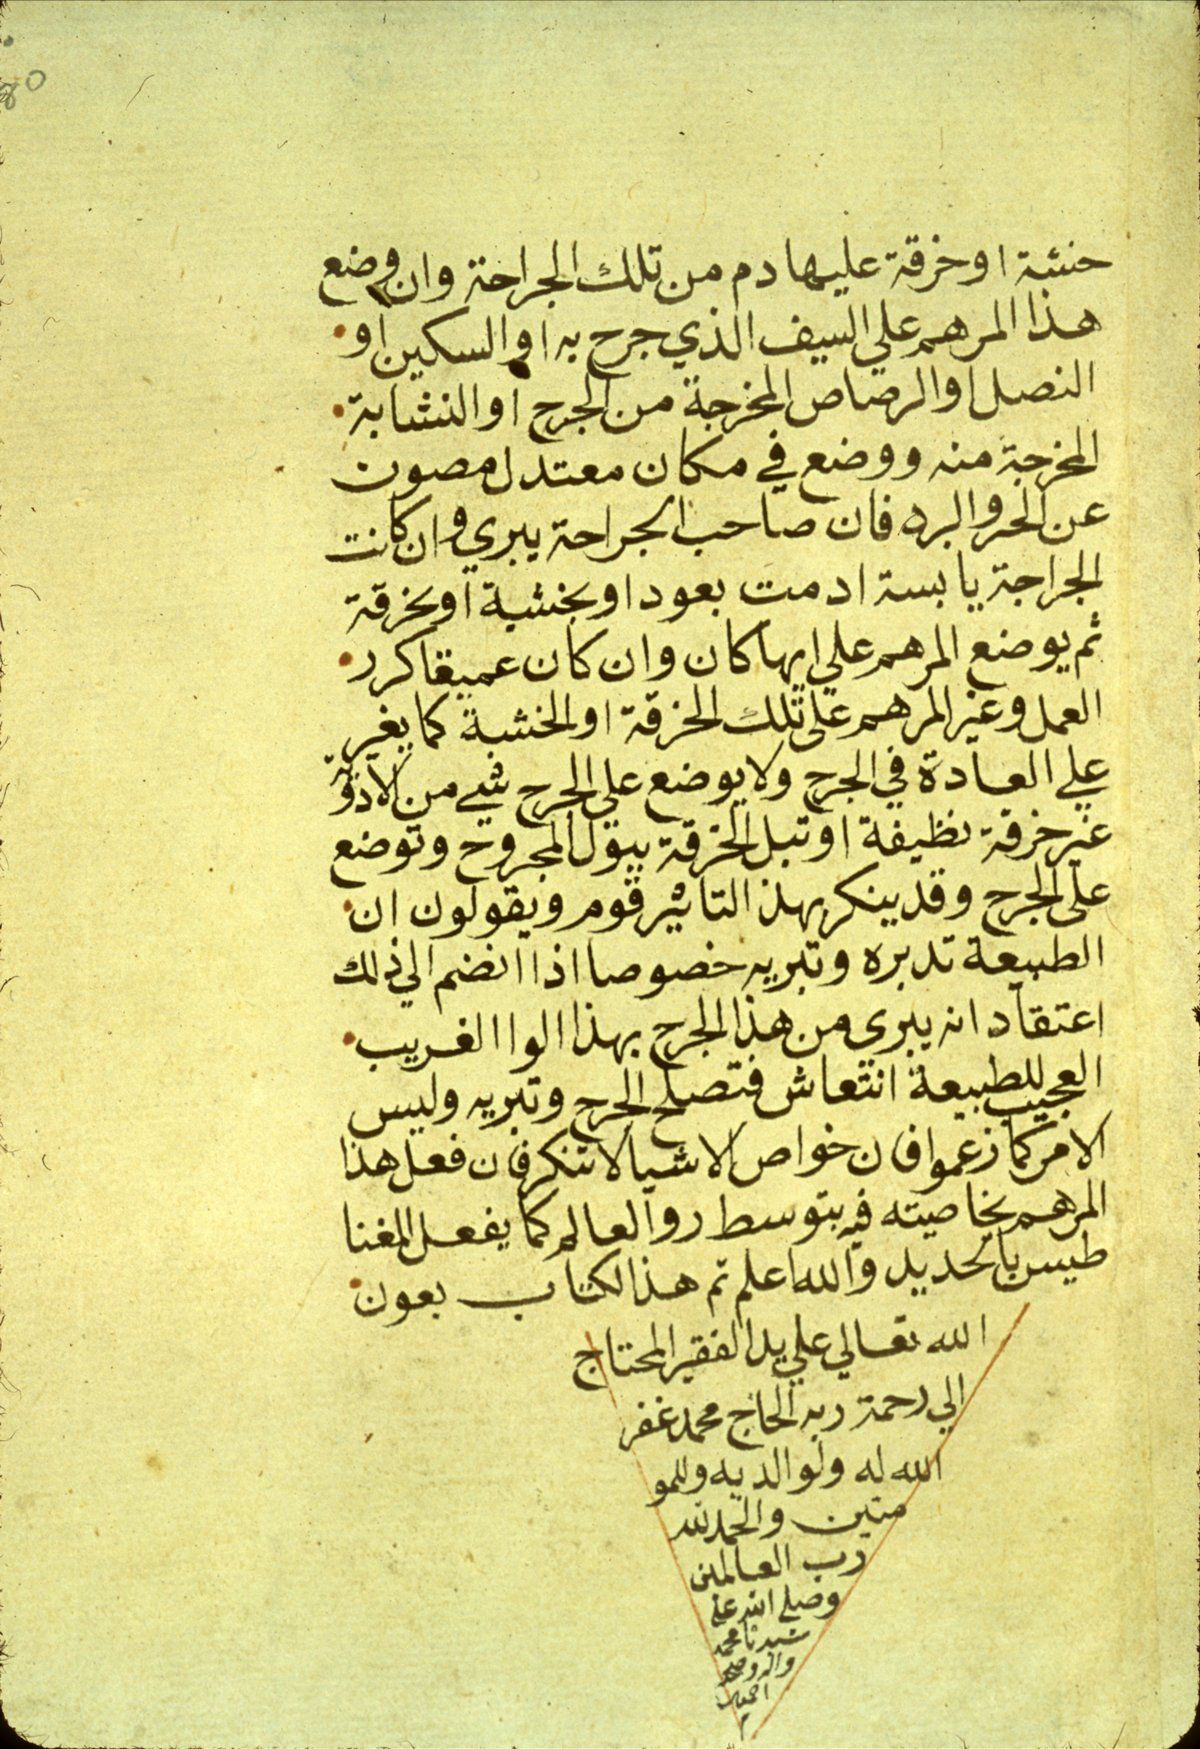 خشبة او خرقة عليها دم من تلك الجراحة وان وضع
هذا المرهم علي السيف الذي جرح به او السكين او
النصل او الرصاص المخرجة من الجرح او النشابة
المخرجة منه ووضع في مكان معتدل مصون
عن الحر والبرد فان صاحب الجراحة يبري وان كانت
الجراحة يابسة ادمت بعود او بخشبة او بخرقة
ثم يوضع المرهم علي ايها كان وان كان عميقا كرر
العمل وغير المرهم علي تلك الخرقة او الخشبة كما يغير
علي العادة في الجرح ولا يوضع علي الجرح شي من الادوية
غير خرقة نظيفة او تبل الخرقة ببول المجروح وتوضع
علي الجرح وقد ينكر بهذا التاثير قوم ويقولون ان
الطبيعة تدبره وتبريه خصوصا اذا انضم الي ذلك
اعتقاد انه يبرى من هذا الجرح بهذا الوا الغريب
العجيب للطبيعة انتعاش فتصلح الجرح وتبريه وليس
الامر كما زعموا فان خواص الاشيا لا تنكر فان فعل هذا
المرهم بخاصيته فيه بتوسط روا العالم كما يفعل المغنا
طيس بالحديد والله اعلم تم هذا الكتاب بعون
الله تعالي علي يد الفقير المحتاج
الي رحمة ربه الحاج محمد غفر
الله له ولوالديه وللمو
منين والحمد لله
رب العالمين
وصلى الله على
سيدنا محمد
واله وصحبه
اجمعين
م